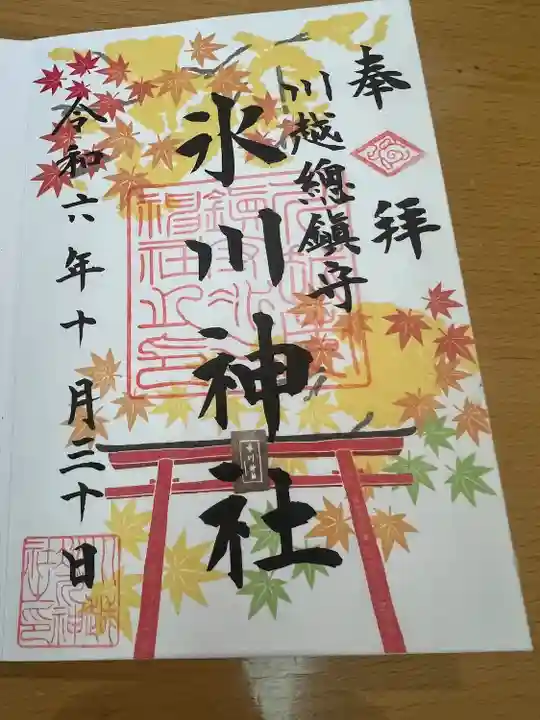 奉拝
川越總鎮守
氷川神社
令和六年十月二十日